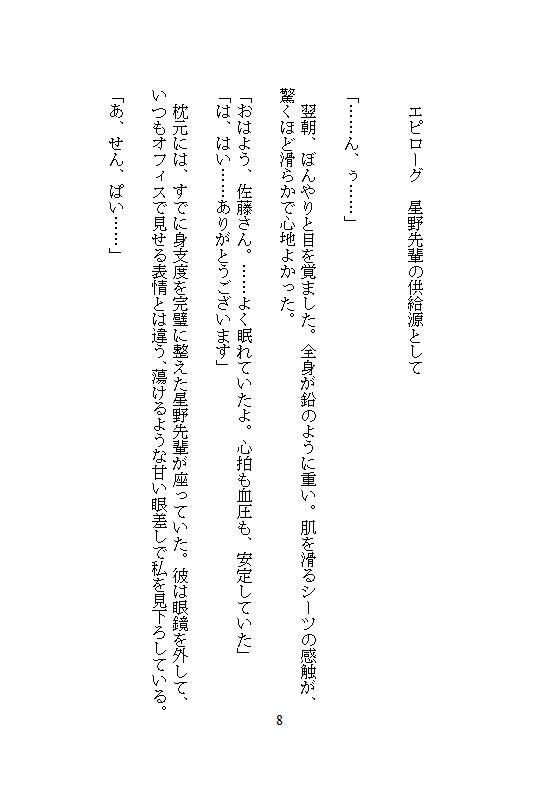 エピローグ　星野先輩の供給源として
「……ん、ぅ……」
翌朝、ぼんやりと目を覚ました。全身が鉛のように重い。肌を滑るシーツの感触が、
驚くほど滑らかで心地よかった。
「おはよう、佐藤さん。……よく眠れていたよ。心拍も血圧も、安定していた」
「は、はい……ありがとうございます」
枕元には、すでに身支度を完璧に整えた星野先輩が座っていた。彼は眼鏡を外して、
いつもオフィスで見せる表情とは違う、蕩けるような甘い眼差しで私を見下ろしている。
「あ、せん、ぱい……」
8